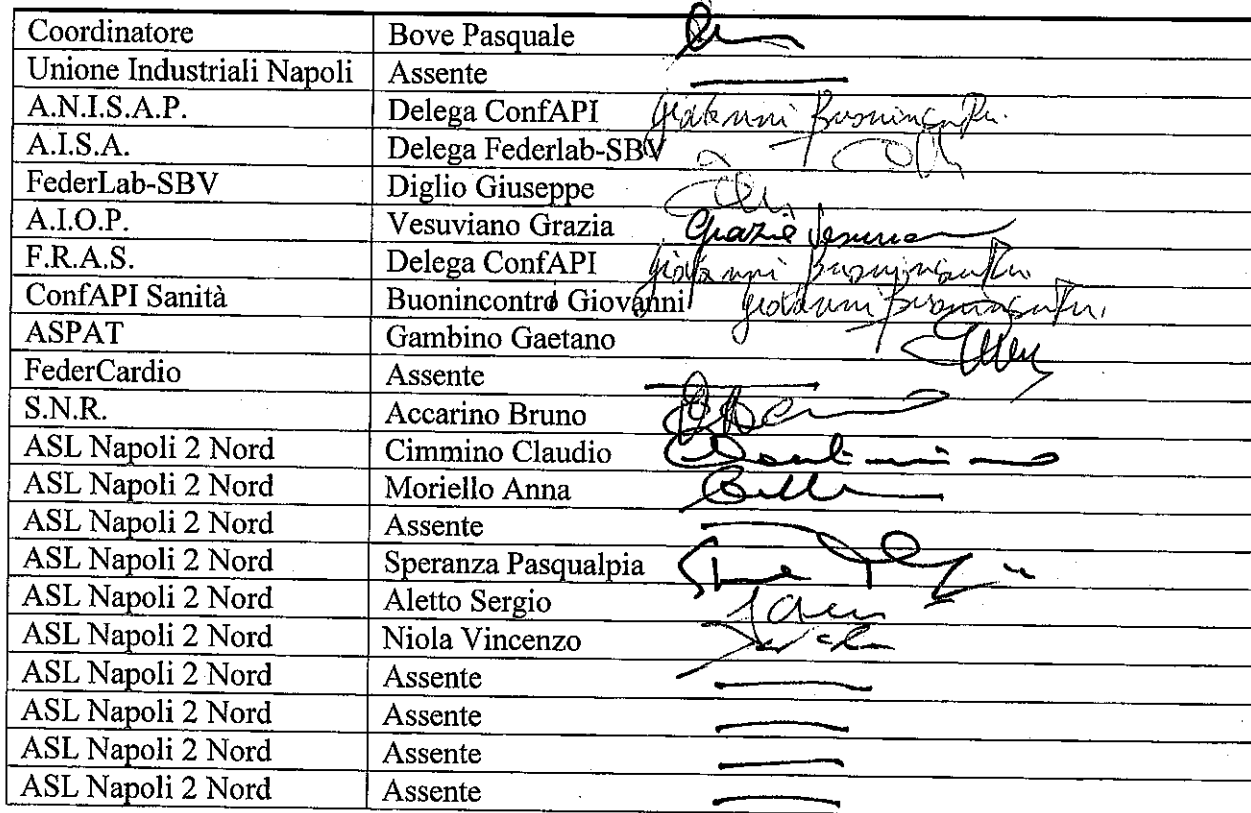 Coordinatore Bove Pasquale
Unione Industriali Napoli Assente
A.N.I.S.A.P. Delega ConfAPI Giovanni Buonincontro
A.I.S.A. Delega Federlab-SBV
FederLab-SBV Diglio Giuseppe
A.I.O.P. Vesuviano Grazia Grazia Vesuviano
F.R.A.S. Delega ConfAPI Giovanni Buonincontro
ConfAPI Sanità Buonincontro Giovanni Giovanni Buonincontro
ASPAT Gambino Gaetano
FederCardio Assente
S.N.R. Accarino Bruno
ASL Napoli 2 Nord Cimmino Claudio
ASL Napoli 2 Nord Moriello Anna
ASL Napoli 2 Nord Assente
ASL Napoli 2 Nord Speranza Pasqualpia
ASL Napoli 2 Nord Aletto Sergio
ASL Napoli 2 Nord Niola Vincenzo
ASL Napoli 2 Nord Assente
ASL Napoli 2 Nord Assente
ASL Napoli 2 Nord Assente
ASL Napoli 2 Nord Assente